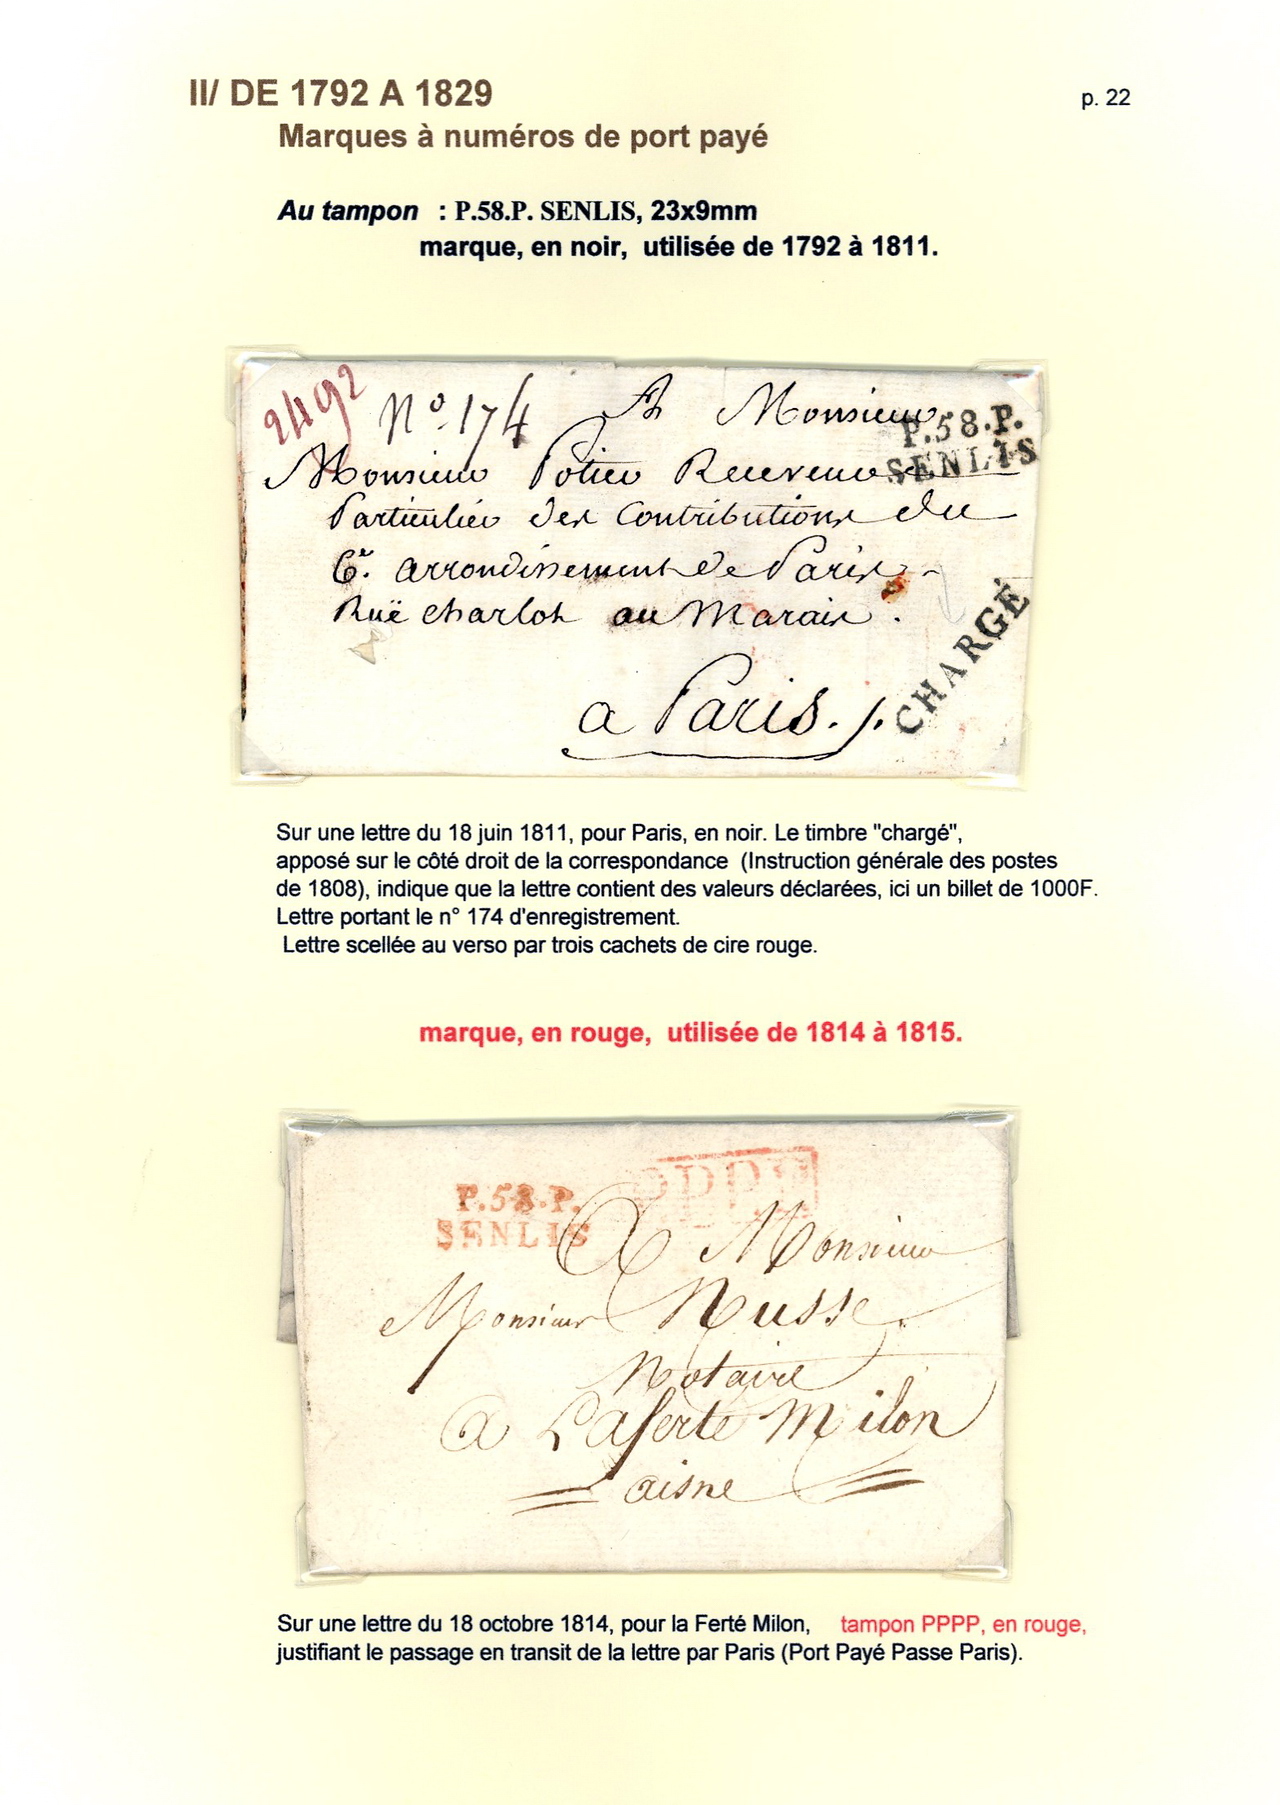 II/ DE 1792 A 1829
p. 22
Marques à numéros de port payé
Au tampon : P.58.P. SENLIS, 23x9mm
marque, en noir, utilisée de 1792 à 1811.
2492
N° 174
A Monsieur
P.58.P.
SENLIS
Monsieur Potier Receveur
Particulier des Contributions du
6e. arrondissement de Paris
Ruë charlot au Marais.
CHARGÉ
a Paris.
Sur une lettre du 18 juin 1811, pour Paris, en noir. Le timbre "chargé",
apposé sur le côté droit de la correspondance (Instruction générale des postes
de 1808), indique que la lettre contient des valeurs déclarées, ici un billet de 1000F.
Lettre portant le n° 174 d'enregistrement.
Lettre scellée au verso par trois cachets de cire rouge.
marque, en rouge, utilisée de 1814 à 1815.
PPPP
P.58.P.
SENLIS
A Monsieur
Monsieur Nusse
Notaire
a Laferte Milon
aisne
Sur une lettre du 18 octobre 1814, pour la Ferté Milon, tampon PPPP, en rouge,
justifiant le passage en transit de la lettre par Paris (Port Payé Passe Paris).